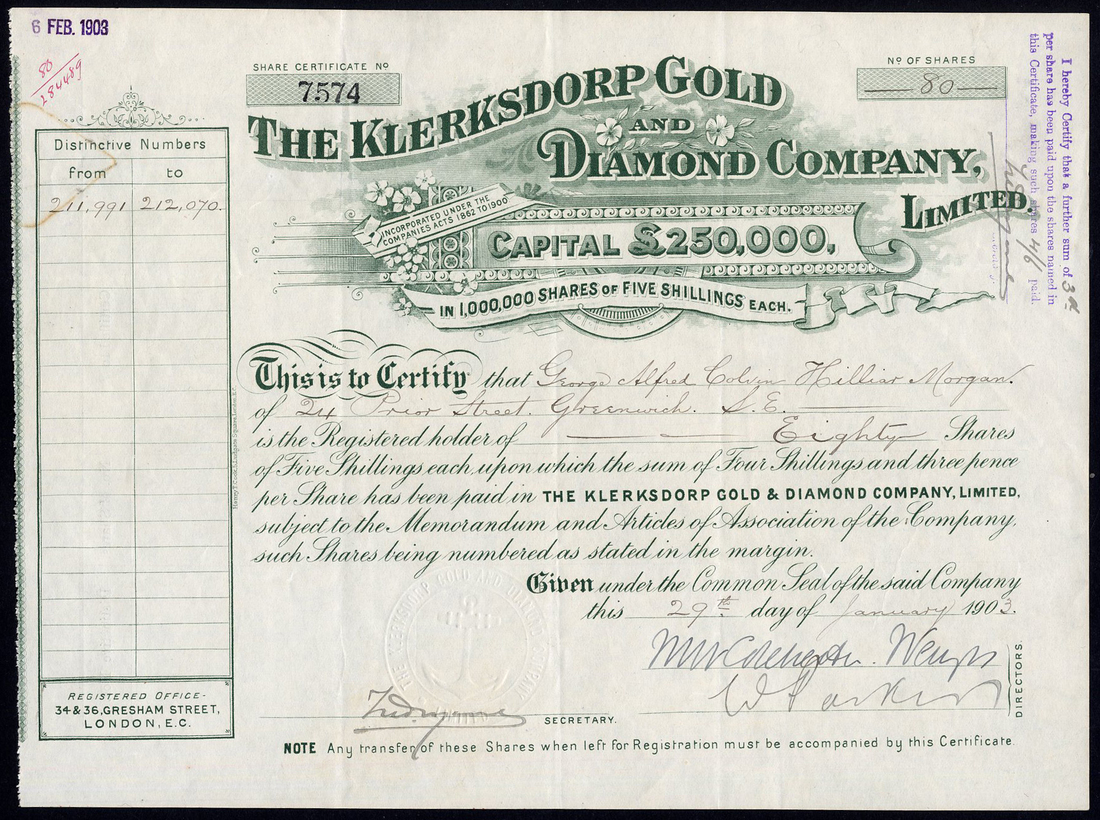 6 FEB. 1903
80
284489
SHARE CERTIFICATE No
7574
No OF SHARES
80
THE KLERKSDORP GOLD
AND
DIAMOND COMPANY,
LIMITED.
INCORPORATED UNDER THE
COMPANIES ACTS 1862 TO 1900
CAPITAL £250,000,
IN 1,000,000 SHARES OF FIVE SHILLINGS EACH.
I hereby Certify that a further sum of 3d
per share has been paid upon the shares named in
this Certificate, making such shares 4/6 paid.
Distinctive Numbers
from to
211,991 212,070.
This is to Certify that George Alfred Colvin Hillier Morgan.
of 24 Prior Street. Greenwich. S.E.
is the Registered holder of Eighty Shares
of Five Shillings each, upon which the sum of Four Shillings and three pence
per Share has been paid in THE KLERKSDORP GOLD & DIAMOND COMPANY, LIMITED,
subject to the Memorandum and Articles of Association of the Company,
such Shares being numbered as stated in the margin.
Given under the Common Seal of the said Company
this 29th day of January 1903.
THE KLERKSDORP GOLD AND DIAMOND COMPANY
DIRECTORS.
SECRETARY.
REGISTERED OFFICE-
34 & 36, GRESHAM STREET,
LONDON, E.C.
NOTE Any transfer of these Shares when left for Registration must be accompanied by this Certificate.